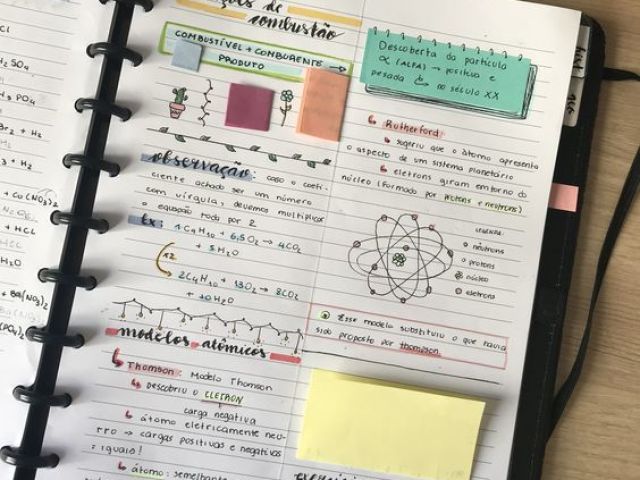 Cl
H₂SO₄
H₃PO₄
+ H₂
+ H₂
+ Cu(NO₃)₂
+ HCl
H₂O
+ Ba(NO₃)₂
ções de
combustão
COMBUSTÍVEL + COMBURENTE →
PRODUTO
observação: caso o coefi-
ciente achado ser um número
com vírgula, devemos multiplicar
a equação toda por 2
Ex: 1C₄H₁₀ + 6,5O₂ → 4CO₂
+ 5H₂O
2C₄H₁₀ + 13O₂ → 8CO₂
+ 10H₂O
modelos atômicos
Thomson: Modelo Thomson
Descobriu o ELÉTRON
carga negativa
átomo eletricamente neu-
tro → cargas positivas e negativas
= iguais!
átomo: semelhante
Descoberta da partícula
α (ALFA) → positiva e
pesada no século XX
Rutherford:
sugeriu que o átomo apresenta
o aspecto de um sistema planetário
elétrons giram em torno do
núcleo (formado por prótons e nêutrons)
LEGENDA:
nêutrons
prótons
núcleo
elétrons
Esse modelo substituiu o que havia
sido proposto por thompson.